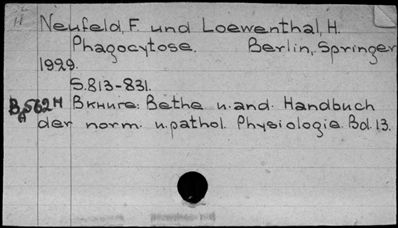 Neufeld, F. und Loewenthal, H.
Phagocytose. Berlin, Springer
1929.
S.813-831.
В книге: Bethe u. and. Handbuch
der norm. u. pathol. Physiologie. Bd. 13.